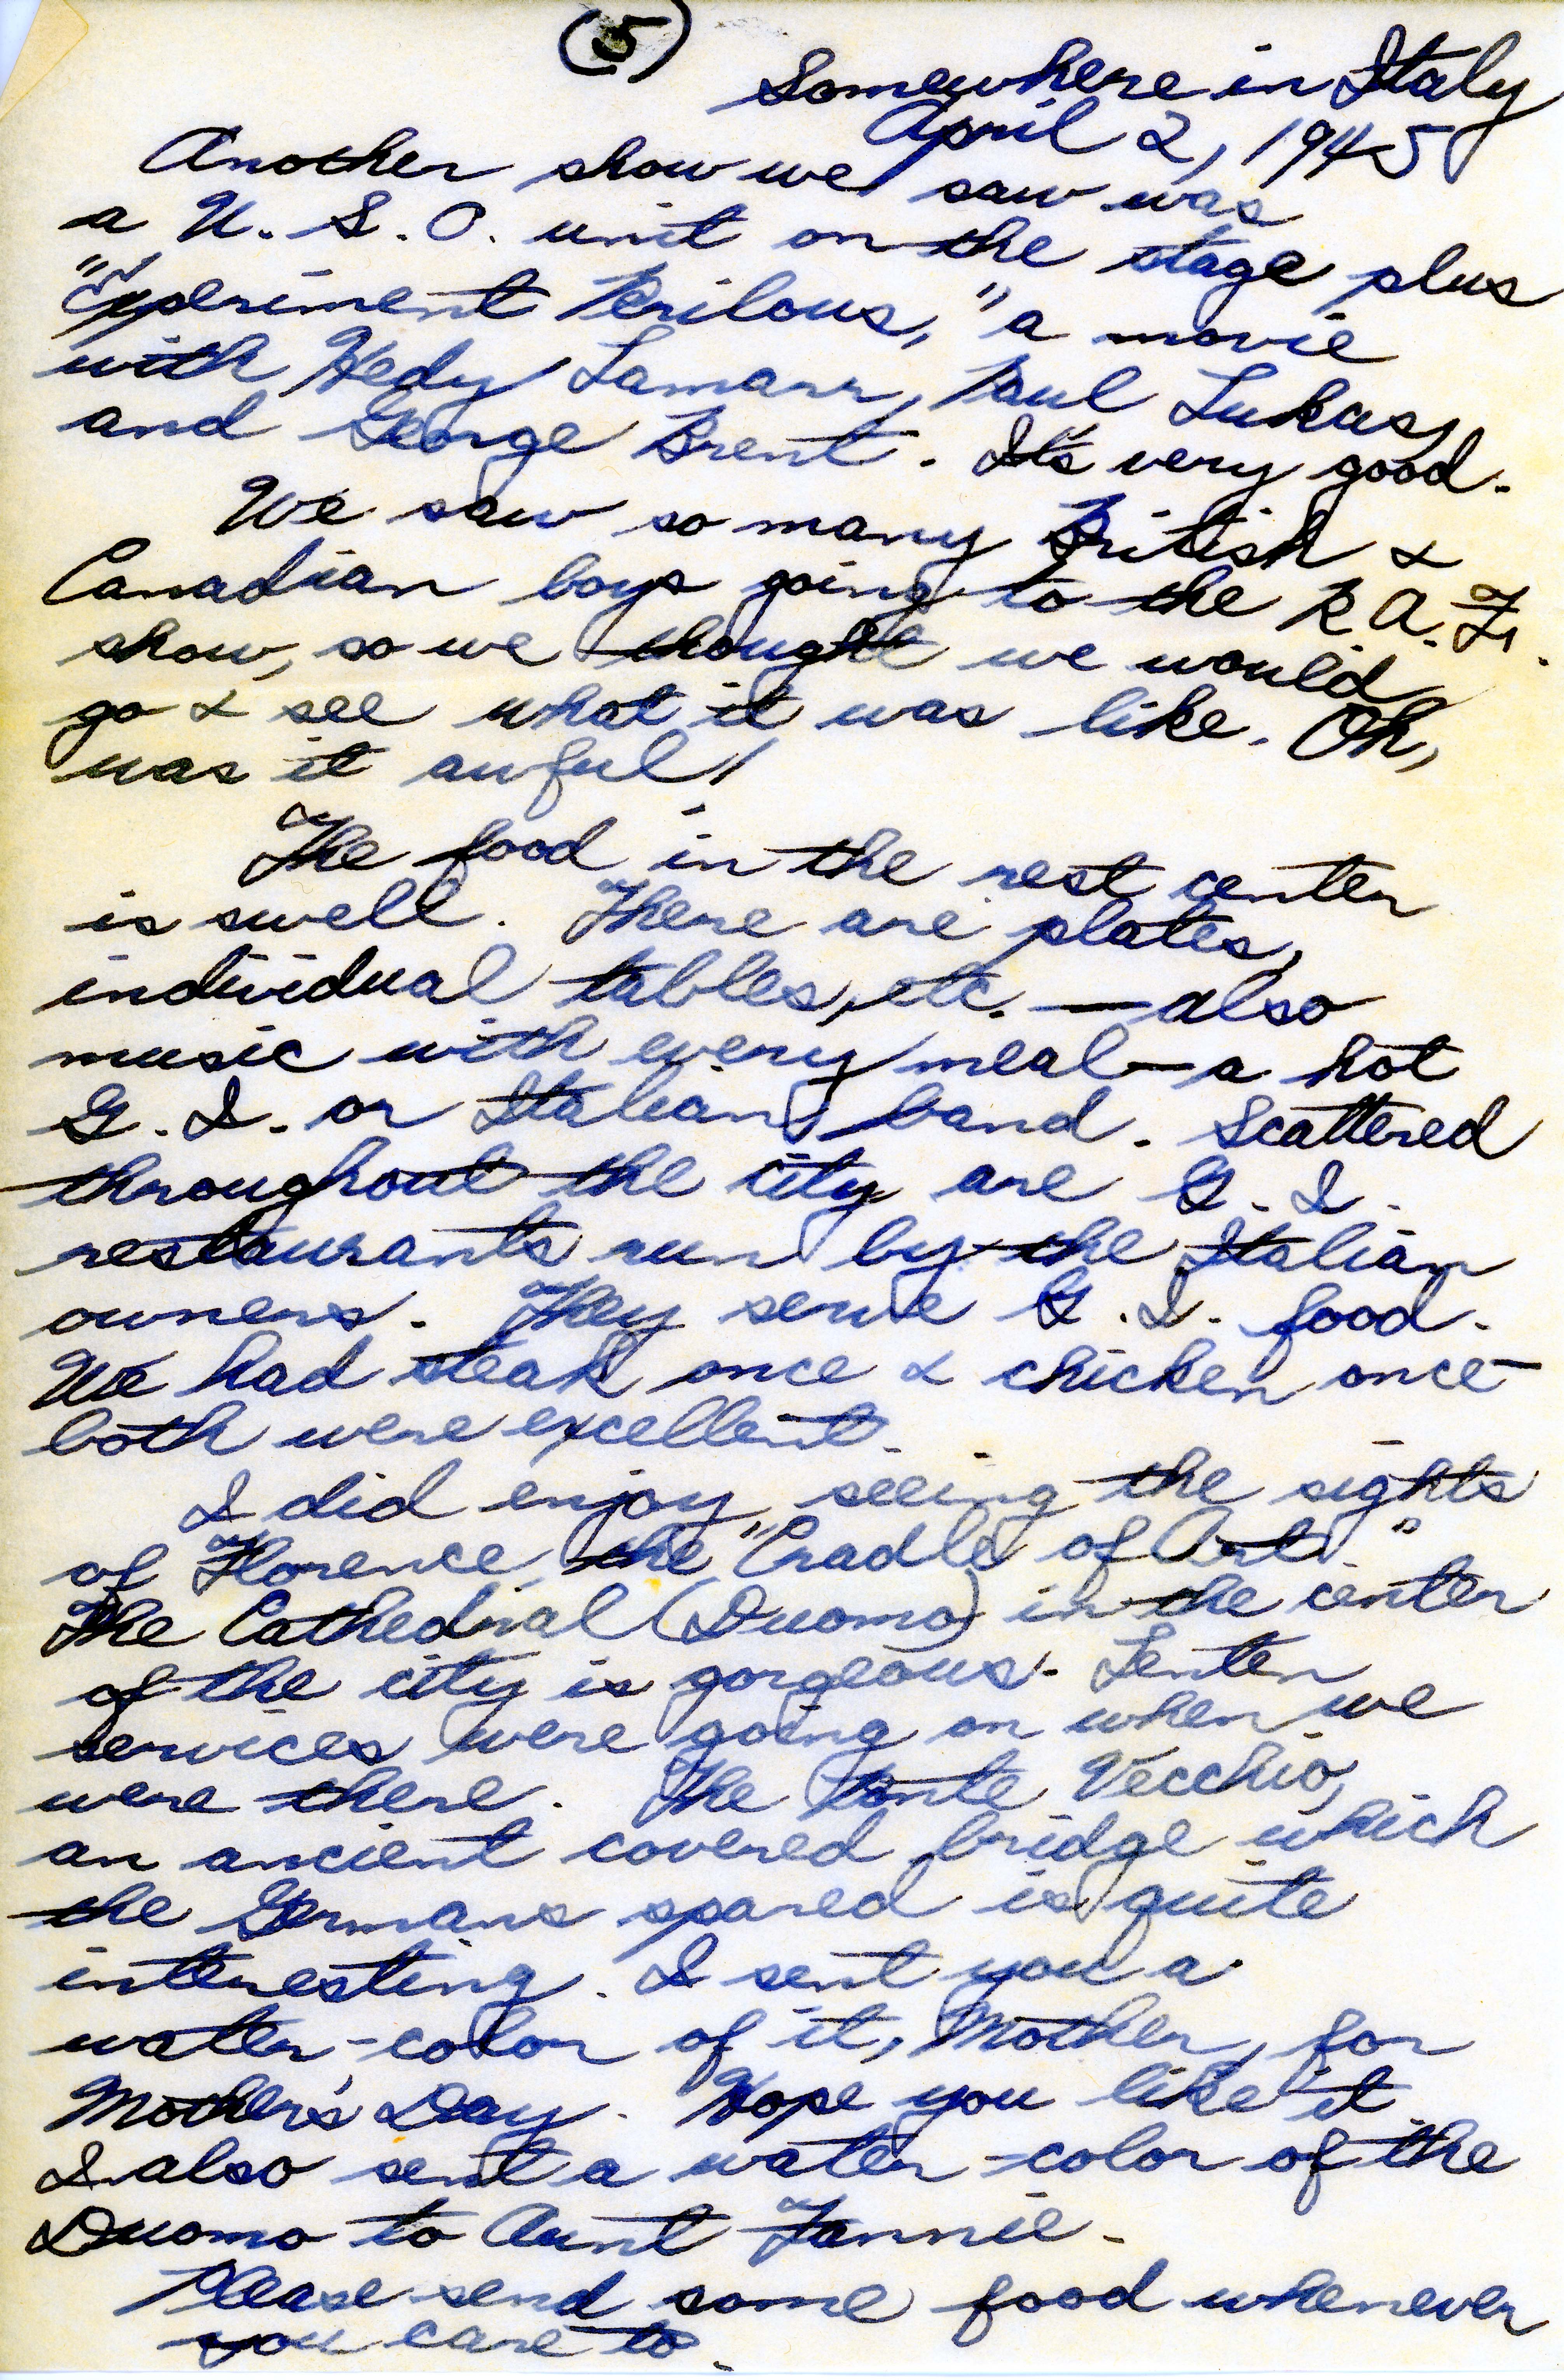 (5)
Somewhere in Italy
April 2, 1945
Another show we saw was
a U. S. O. unit on the stage plus
"Experiment Perilous," a movie
with Hedy Lamarr, Paul Lukas,
and George Brent. It's very good.
We saw so many British &
Canadian boys going to the R.A.F.
show, so we thought we would
go & see what it was like. Oh,
was it awful!
The food in the rest center
is swell. There are plates,
individual tables, etc. — also
music with every meal — a hot
G. I. or Italian band. Scattered
throughout the city are G. I.
restaurants run by the Italian
owners. They serve G. I. food.
We had steak once & chicken once —
both were excellent.
I did enjoy seeing the sights
of Florence, the "Cradle of Art."
The Cathedral (Duomo) in the center
of the city is gorgeous. Lenten
services were going on when we
were there. The Ponte Vecchio,
an ancient covered bridge which
the Germans spared is quite
interesting. I sent you a
water-color of it, Mother, for
Mother's Day. Hope you like it.
I also sent a water-color of the
Duomo to Aunt Fannie.
Please send some food whenever
you care to.